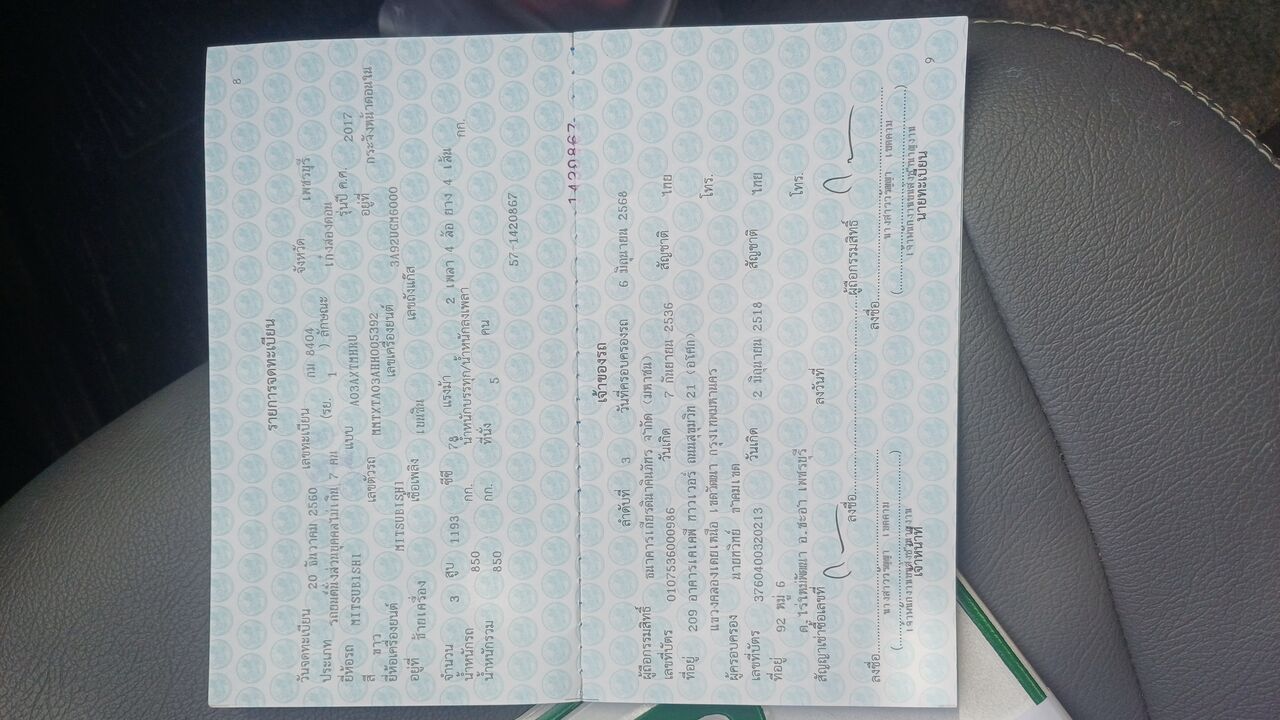 8
รายการจดทะเบียน
วันจดทะเบียน 20 ธันวาคม 2560 เลขทะเบียน กม 8404 จังหวัด เพชรบุรี
ประเภท รถยนต์นั่งส่วนบุคคลไม่เกิน 7 คน (รย. 1 ) ลักษณะ เก๋งสองตอน
ยี่ห้อรถ MITSUBISHI แบบ A03AXTMHRU รุ่นปี ค.ศ. 2017
สี ขาว เลขตัวรถ MMTXTA03AHH005392 อยู่ที่ กระจังหน้าตอนใน
ยี่ห้อเครื่องยนต์ MITSUBISHI เลขเครื่องยนต์ 3A92UGM6000
อยู่ที่ ซ้ายเครื่อง เชื้อเพลิง เบนซิน เลขถังแก๊ส
จำนวน 3 สูบ 1193 ซีซี 78 แรงม้า 2 เพลา 4 ล้อ ยาง 4 เส้น
น้ำหนักรถ 850 กก. น้ำหนักบรรทุก/น้ำหนักลงเพลา กก.
น้ำหนักรวม 850 กก. ที่นั่ง 5 คน
57-1420867
1420867
เจ้าของรถ
ลำดับที่ 3 วันที่ครอบครองรถ 6 มิถุนายน 2568
ผู้ถือกรรมสิทธิ์ ธนาคารเกียรตินาคินภัทร จำกัด (มหาชน)
เลขที่บัตร 0107536000986 วันเกิด 7 กันยายน 2536 สัญชาติ ไทย
ที่อยู่ 209 อาคารเคเคพี ทาวเวอร์ ถนนสุขุมวิท 21 (อโศก) โทร.
แขวงคลองเตยเหนือ เขตวัฒนา กรุงเทพมหานคร
ผู้ครอบครอง นายทวีทย์ ขาคมเขต
เลขที่บัตร 3760400320213 วันเกิด 2 มิถุนายน 2518 สัญชาติ ไทย
ที่อยู่ 92 หมู่ 6 โทร.
ต.ไร่ใหม่พัฒนา อ.ชะอำ เพชรบุรี
สัญญาเช่าซื้อเลขที่ ลงวันที่
ลงชื่อ ผู้ถือกรรมสิทธิ์
ลงชื่อ ลงชื่อ
เจ้าหน้าที่ นายทะเบียน
9